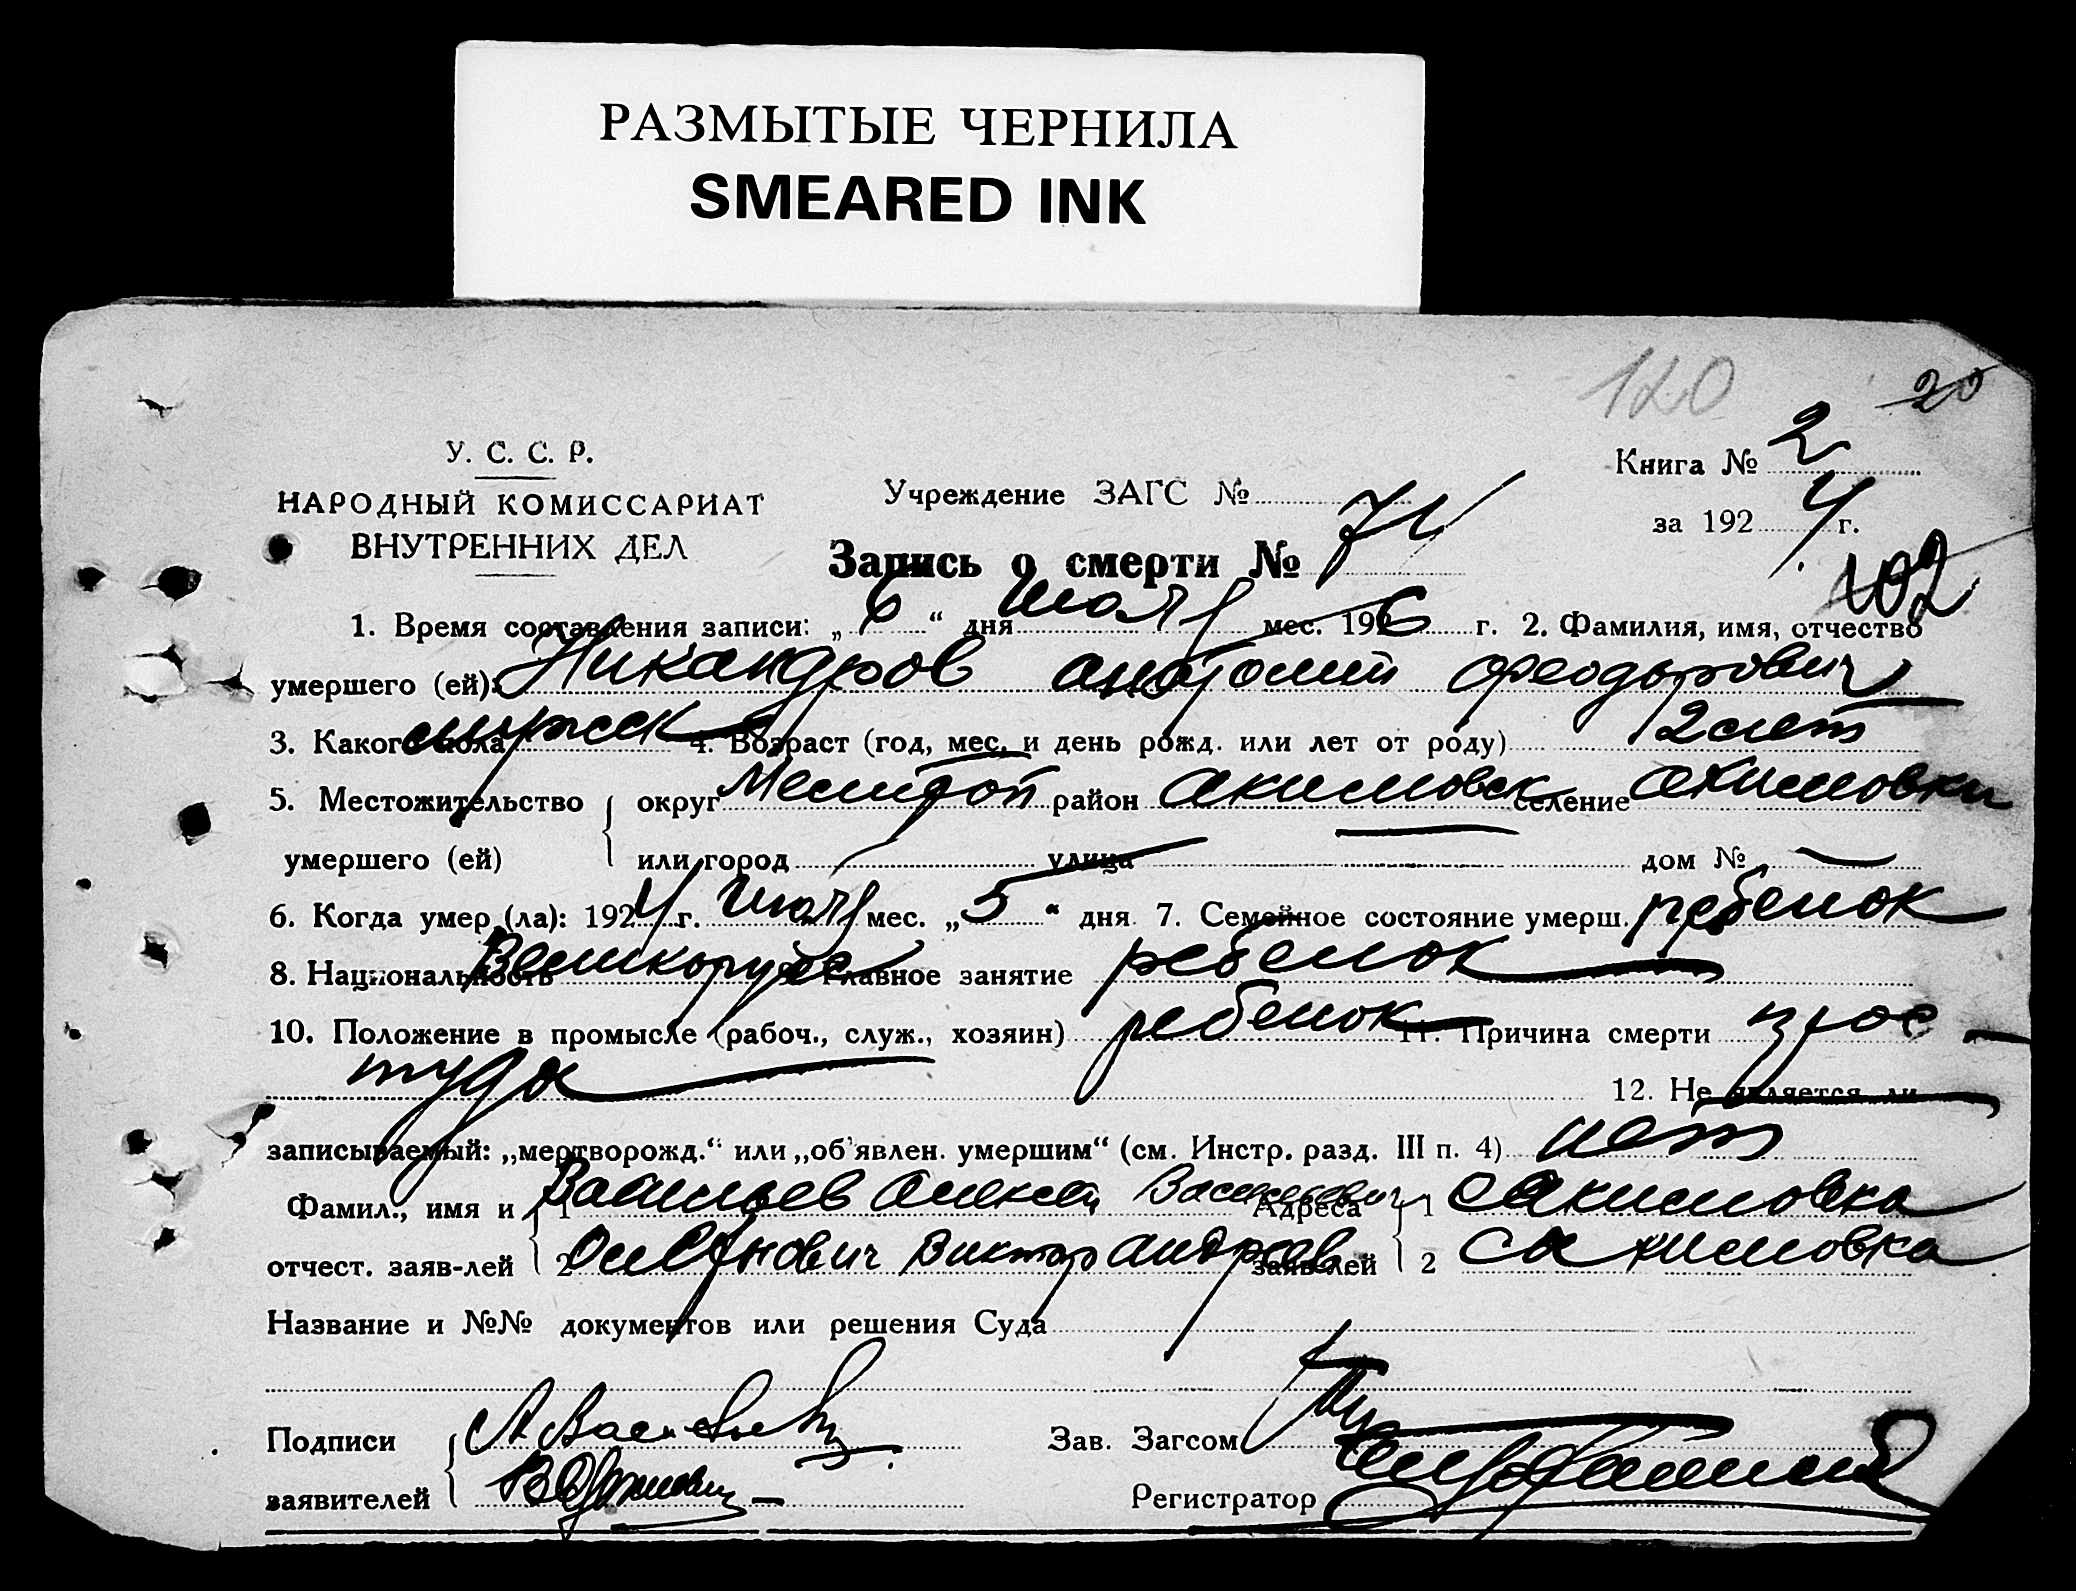 РАЗМЫТЫЕ ЧЕРНИЛА
SMEARED INK
120 20
У. С. С. Р.
НАРОДНЫЙ КОМИССАРИАТ
ВНУТРЕННИХ ДЕЛ
Учреждение ЗАГС №
Книга № 2
за 1924 г.
Запись о смерти № 71
102
1. Время составления записи: „6“ дня июля мес. 192 г. 2. Фамилия, имя, отчество
умершего (ей): Никандров Анатолий Феодорович
3. Какого пола мужск 4. Возраст (год, мес. и день рожд. или лет от роду) 2 лет
5. Местожительство умершего (ей) округ Мелитоп район Акимовск селение Акимовки
или город улица дом № —
6. Когда умер (ла): 1924 г. июля мес. „5“ дня 7. Семейное состояние умерш. ребенок
8. Национальность Великорус 9. Главное занятие ребенок
10. Положение в промысле (рабоч., служ., хозяин) ребенок 11. Причина смерти прос
туда
12. Не является ли
записываемый: „мертворожд.“ или „об'явлен. умершим“ (см. Инстр. разд. III п. 4) нет
Фамил., имя и 1 Васильев Алексей Васильевич Адреса 1 с Акимовка
отчест. заяв-лей 2 Виктор Андреев заяв-лей 2 с Акимовка
Название и №№ документов или решения Суда
Подписи А Васильев Зав. Загсом
заявителей Регистратор